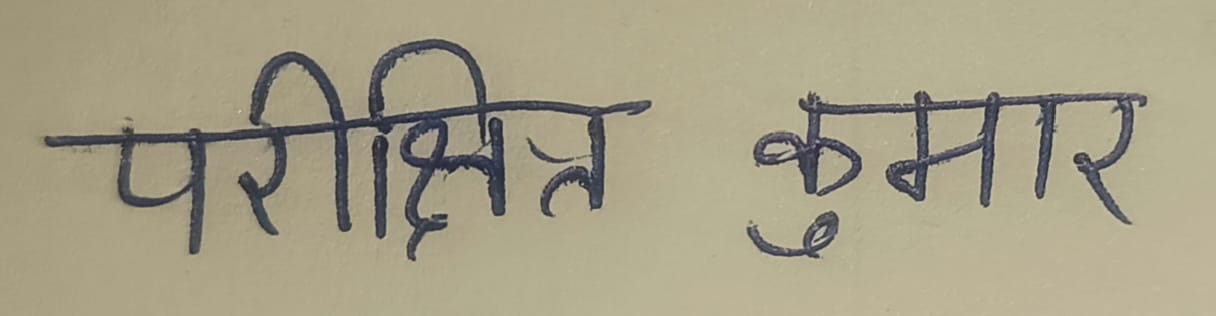 परीक्षित कुमार